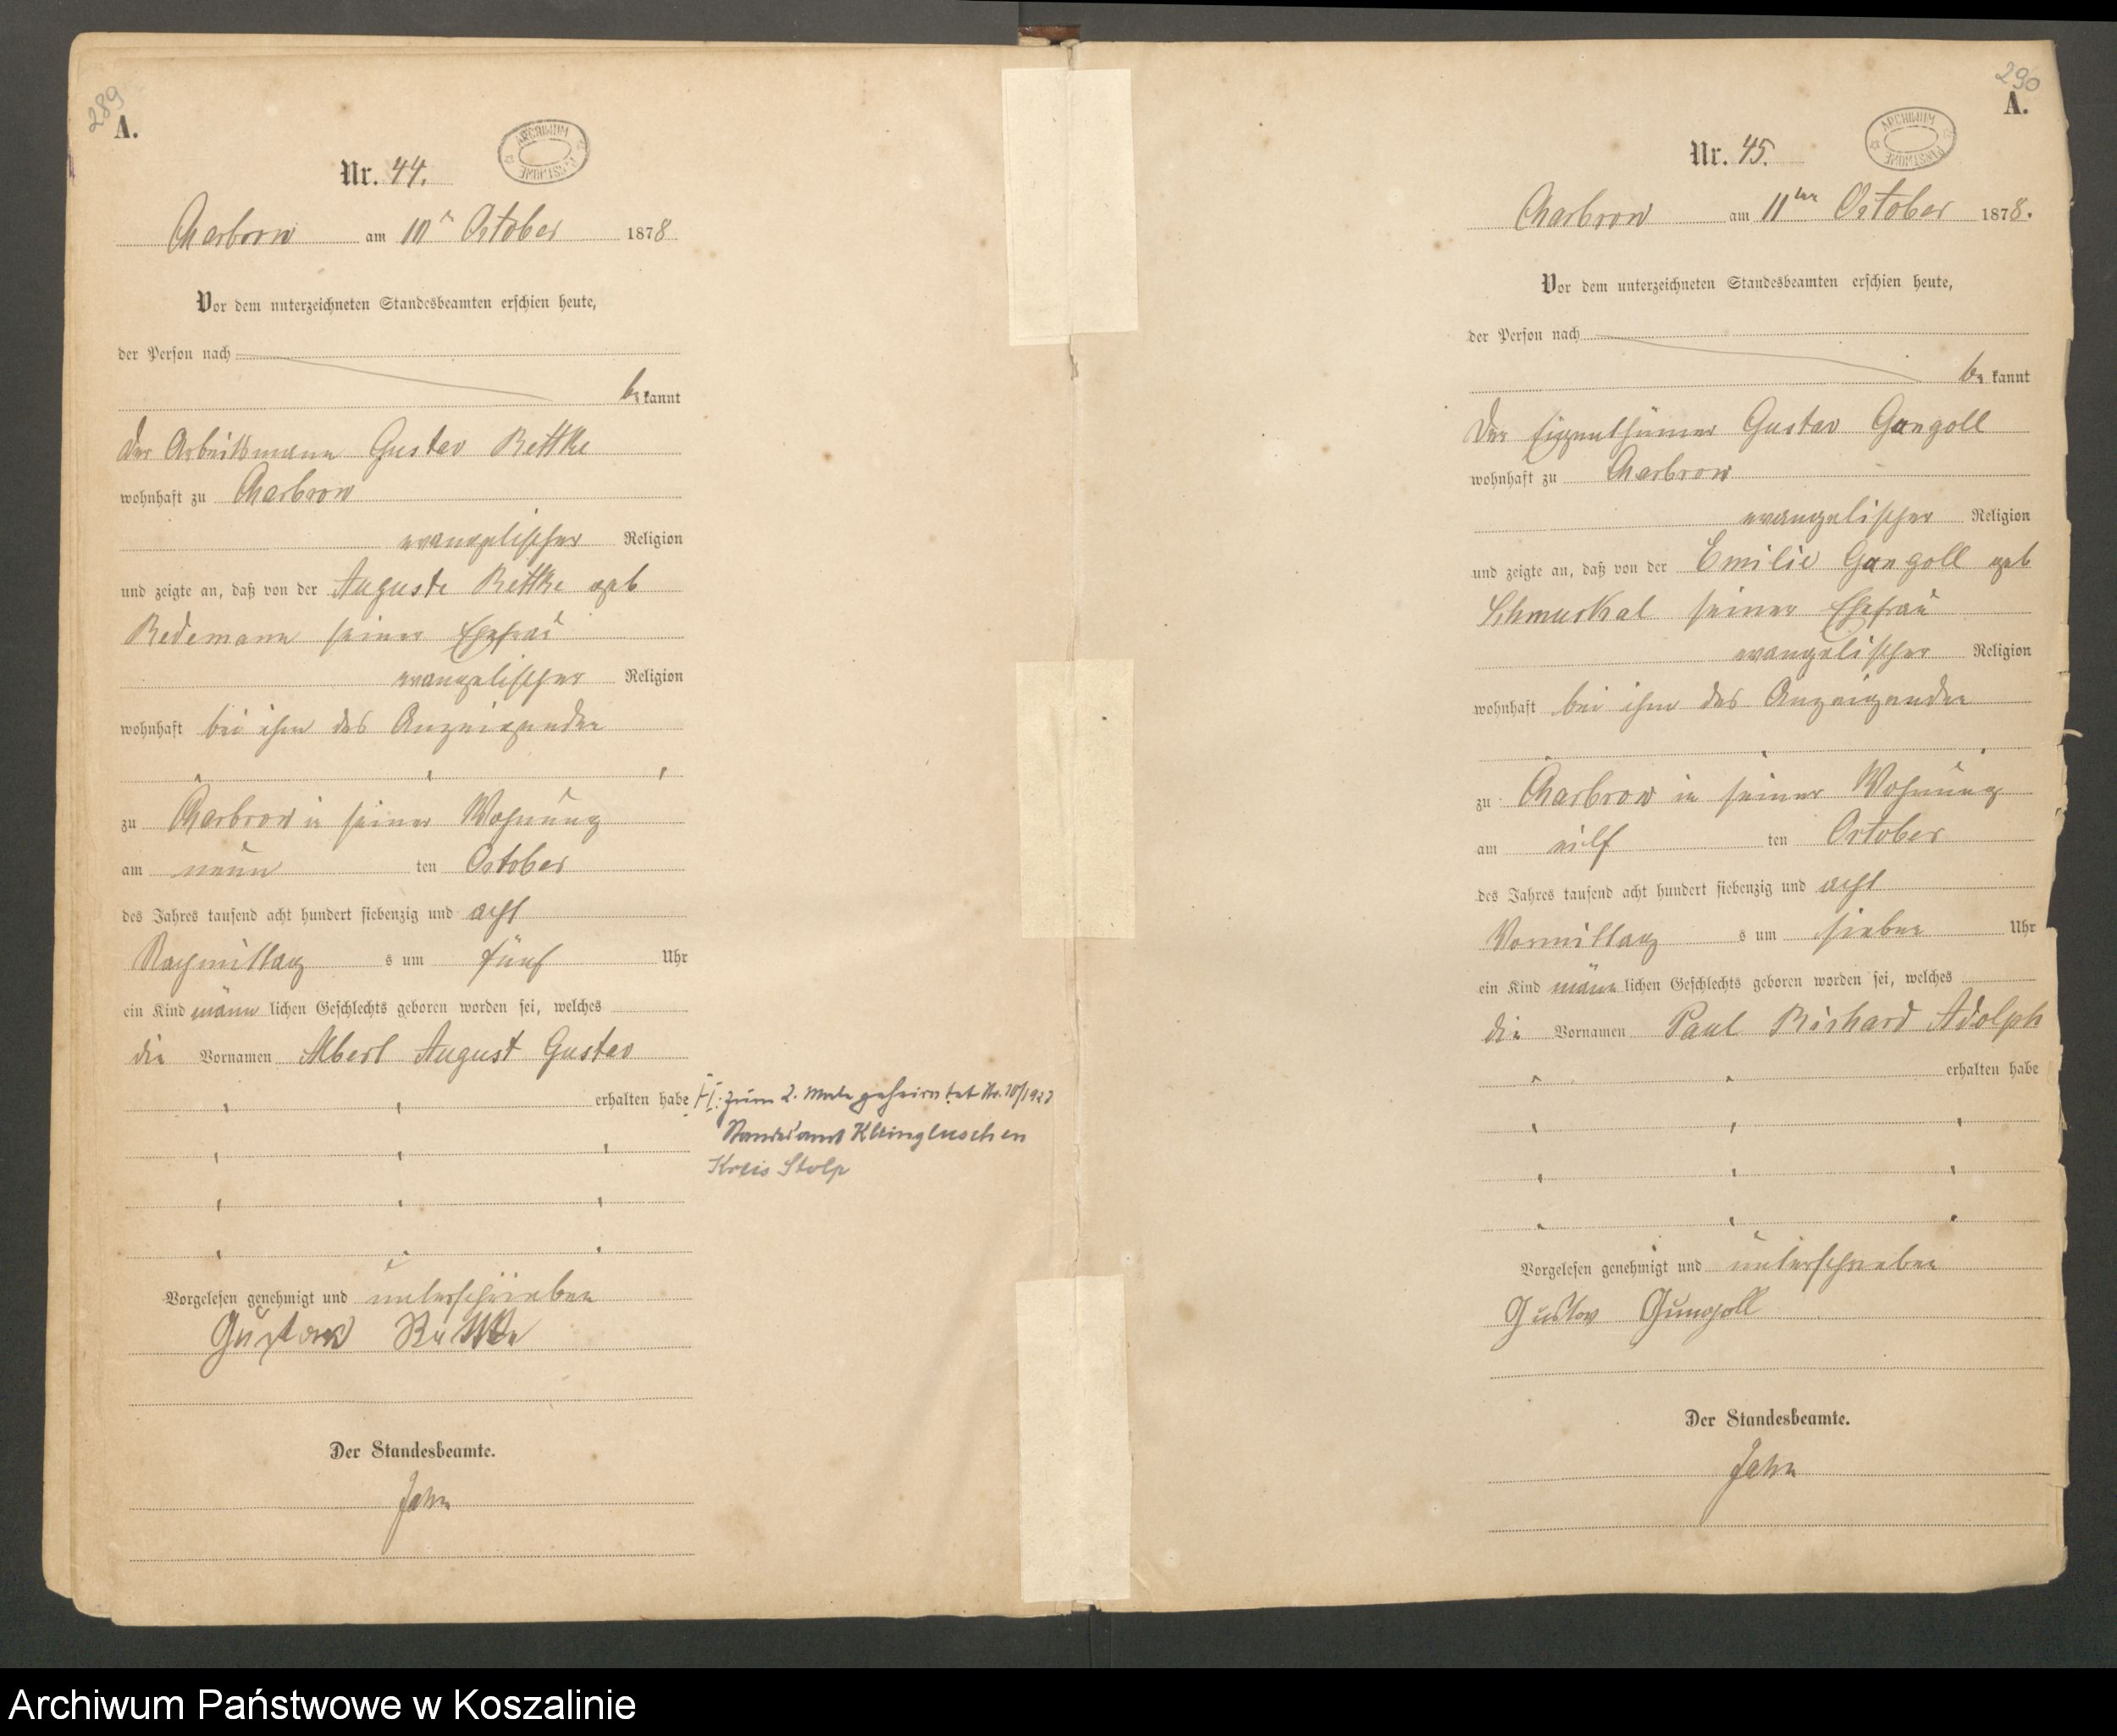 289
A.
ARCHIWUM PAŃSTWOWE
Nr. 44.
Charbrow am 10n October 1878
Vor dem unterzeichneten Standesbeamten erschien heute,
der Person nach
bekannt
der Arbeitsmann Gustav Rettke
wohnhaft zu Charbrow
evangelischer Religion
und zeigte an, daß von der Auguste Rettke geb
Redemann seiner Ehefrau
evangelischer Religion
wohnhaft bei ihm des Anzeigenden
zu Charbrow in seiner Wohnung
am neun ten October
des Jahres tausend acht hundert siebenzig und acht
Nachmittag s um fünf Uhr
ein Kind männlichen Geschlechts geboren worden sei, welches
die Vornamen Albert August Gustav
erhalten habe
zum 2. Male geheiratet Nr. 10/1923
Standesamt Kleingluschen
Kreis Stolp
Vorgelesen genehmigt und unterschrieben
Gustav Rettke
Der Standesbeamte.
Jahn
290
A.
ARCHIWUM PAŃSTWOWE
Nr. 45.
Charbrow am 11ten October 1878.
Vor dem unterzeichneten Standesbeamten erschien heute,
der Person nach
bekannt
Der Eigenthümer Gustav Gangoll
wohnhaft zu Charbrow
evangelischer Religion
und zeigte an, daß von der Emilie Gangoll geb
Schmuskal seiner Ehefrau
evangelischer Religion
wohnhaft bei ihm des Anzeigenden
zu Charbrow in seiner Wohnung
am eilf ten October
des Jahres tausend acht hundert siebenzig und acht
Vormittag s um sieben Uhr
ein Kind männlichen Geschlechts geboren worden sei, welches
die Vornamen Paul Richard Adolph
erhalten habe
Vorgelesen genehmigt und unterschrieben
Gustav Gungoll
Der Standesbeamte.
Jahn
Archiwum Państwowe w Koszalinie